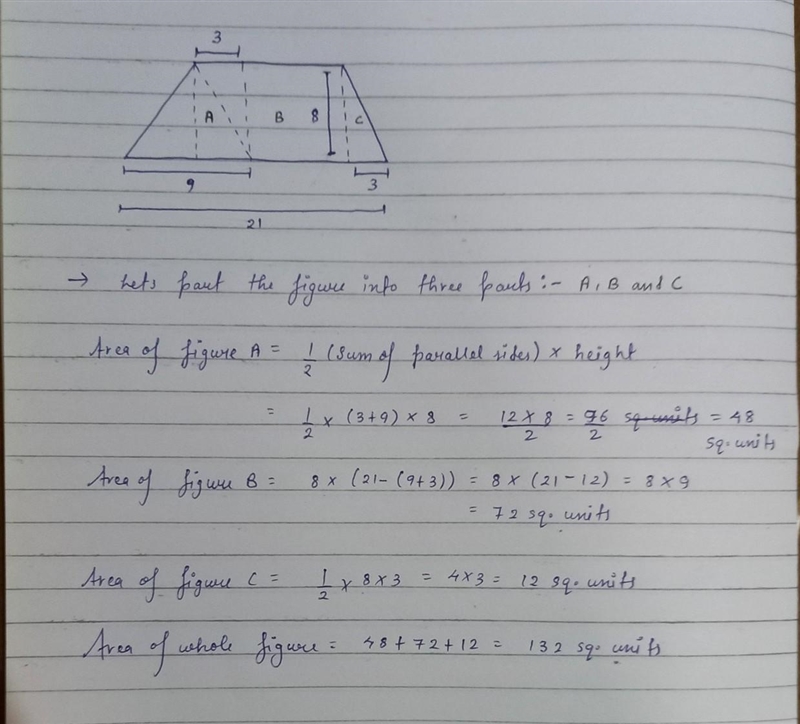 3
A B 8 C
9 3
21
→ Lets part the figure into three parts :- A, B and C
Area of figure A = 1/2 (sum of parallel sides) × height
= 1/2 × (3+9) × 8 = 12 × 8/2 = 96/2 sq. units = 48 sq. units
Area of figure B = 8 × (21 - (9+3)) = 8 × (21 - 12) = 8 × 9
= 72 sq. units
Area of figure C = 1/2 × 8 × 3 = 4 × 3 = 12 sq. units
Area of whole figure = 48 + 72 + 12 = 132 sq. units